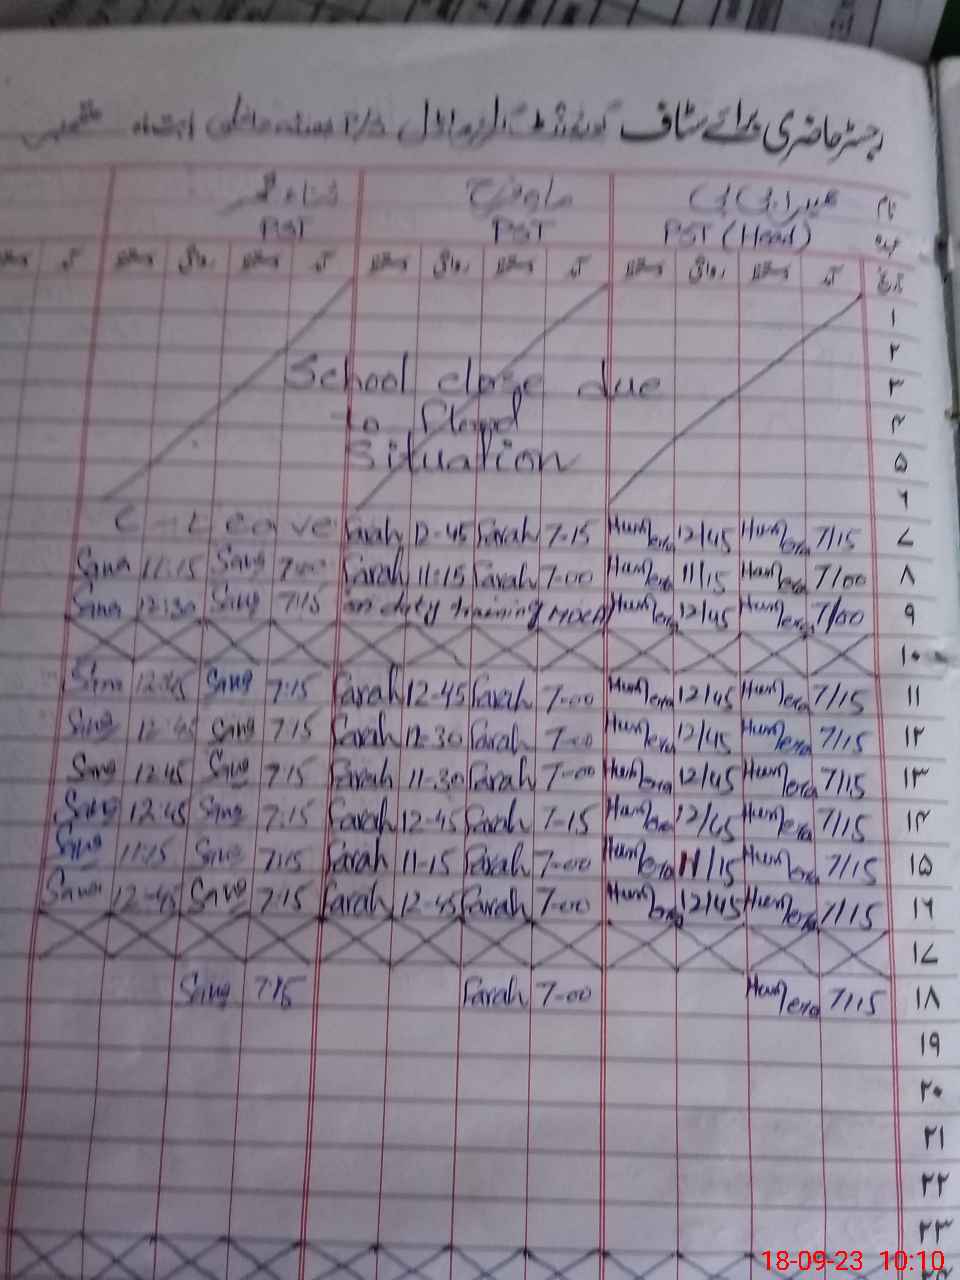 رجسٹر حاضری برائے سٹاف گورنمنٹ گرلز پرائمری
نام حمیرا بی بی ماہ فرخ ثناء
عہدہ PST (Head) PST PST
تاریخ آمد دستخط روانگی دستخط آمد دستخط روانگی دستخط آمد دستخط روانگی دستخط آمد دستخط
۱
۲
School close due ۳
to flood ۴
Situation ۵
۶
C-Leave Farah 12-45 Farah 7-15 Humera 12/45 Humera 7/15 ۷
Sana 11:15 Sana 7:00 Farah 11:15 Farah 7-00 Humera 11/15 Humera 7/00 ۸
Sana 12:30 Sana 7:15 on duty training Humera 12/45 Humera 7/00 ۹
۱۰
Sana 12:45 Sana 7:15 Farah 12-45 Farah 7-00 Humera 12/45 Humera 7/15 ۱۱
Sana 12:45 Sana 7:15 Farah 12-30 Farah 7-00 Humera 12/45 Humera 7/15 ۱۲
Sana 12:45 Sana 7:15 Farah 11-30 Farah 7-00 Humera 12/45 Humera 7/15 ۱۳
Sana 12:45 Sana 7:15 Farah 12-45 Farah 7-15 Humera 12/45 Humera 7/15 ۱۴
Sana 11:15 Sana 7:15 Farah 11-15 Farah 7-00 Humera 11/15 Humera 7/15 ۱۵
Sana 12-45 Sana 7:15 Farah 12-45 Farah 7-00 Humera 12/45 Humera 7/15 ۱۶
۱۷
Sana 7:15 Farah 7-00 Humera 7/15 ۱۸
۱۹
۲۰
۲۱
۲۲
۲۳
18-09-23 10:10